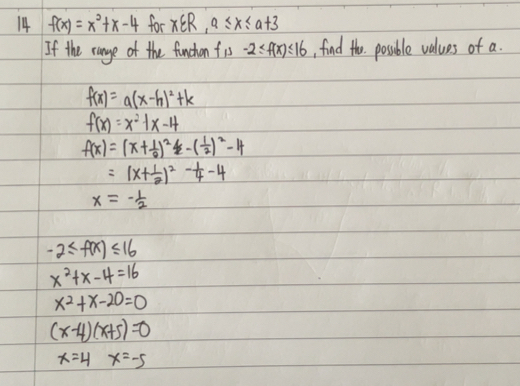 14 f(x) = x²+x-4 for x∈R, a ≤ x ≤ a+3
If the range of the function f is -2 ≤ f(x) ≤ 16, find the possible values of a.
f(x) = a(x-h)²+k
f(x) = x²+x-4
f(x) = (x+½)² -(½)² -4
= (x+½)² -¼ -4
x = -½
-2 ≤ f(x) ≤ 16
x²+x-4 = 16
x²+x-20=0
(x-4)(x+5)=0
x=4 x=-5